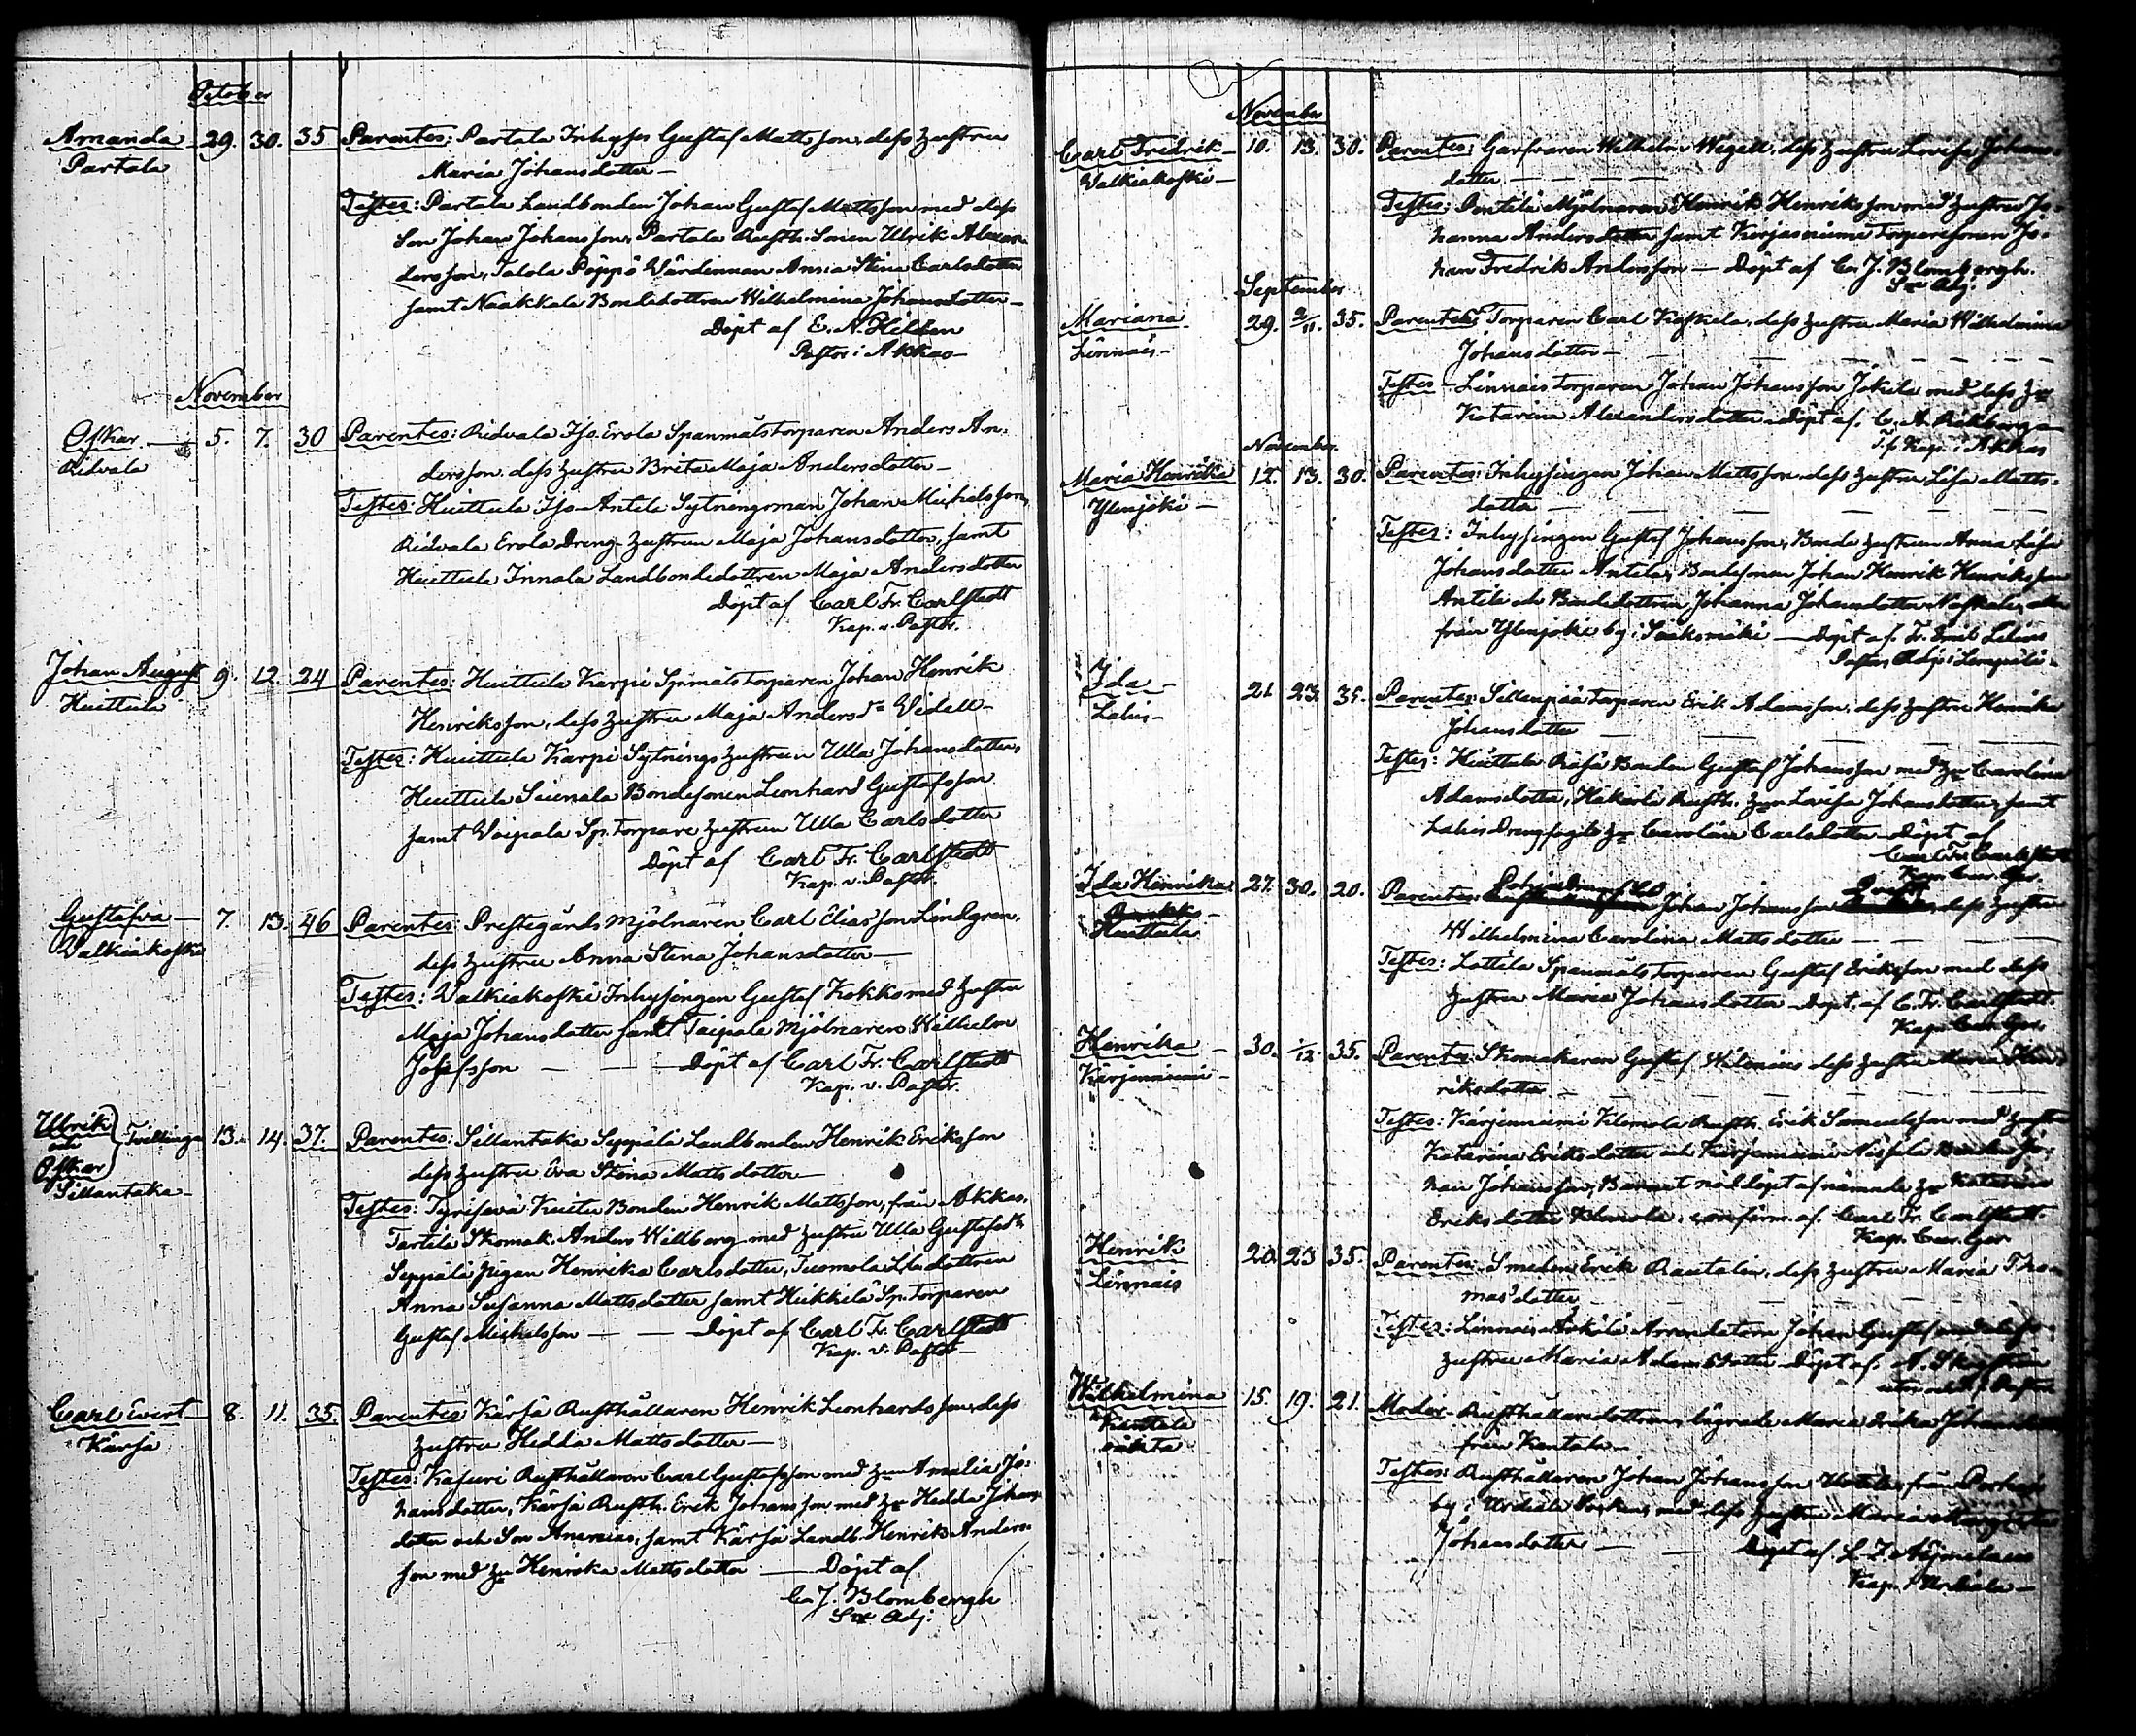 October
Amanda 29. 30. 35 Parentes: Partala Inhyses Gustaf Mattsson, dess hustru
Partala Maria Johansdotter —
Testes: Partala Landbonden Johan Gustaf Mattsson med dess
Son Johan Johansson, Partala Rusth. Sonen Ulrik Alexan-
dersson, Jalola Värdinnan Anna Stina Carlsdotter
samt Naakkala Bondedottren Wilhelmina Johansdotter —
Döpt af E. N. Hildén
Pastor i Akkas —
November
Oskar 5. 7. 30 Parentes: Ridvala Iso Erola Spanmålstorparen Anders An-
Ridvala dersson dess hustru Brita Maja Andersdotter —
Testes: Huittula Iso-Antila Sytningsman Johan Michelsson,
Ridvala Erola Dreng-hustrun Maja Johansdotter, samt
Huittula Innala Landbondedottren Maja Andersdotter
Döpt af Carl Fr. Carlstedt
Kap. v. Pastor.
Johan August 9. 12. 24 Parentes: Huittula Karpi Spmålstorparen Johan Henrik
Huittula Henriksson, dess hustru Maja Andersdr Videll —
Testes: Huittula Karpi Sytningshustrun Ulla Johansdotter,
Huittula Seienala Bondesonen Leonhard Gustafsson
samt Voipala Sp. torpare hustrun Ulla Carlsdotter
Döpt af Carl Fr. Carlstedt
Kap. v. Pastor.
Gustafva — 7. 13. 46 Parentes: Prestegårds Mjölnaren Carl Eliasson Lindgren,
Valkiakoski dess hustru Anna Stina Johansdotter —
Testes: Valkiakoski Inhysingen Gustaf Kokko med hustru
Maja Johansdotter samt Taipale Mjölnaren Wilhelm
Josefsson — — Döpt af Carl Fr. Carlstedt
Kap. v. Pastor.
Ulrik
och Tvillingar 13. 14. 37. Parentes: Sillantaka Seppälä Landbonden Henrik Eriksson
Oskar dess hustru Eva Stina Mattsdotter —
Sillantaka —
Testes: Tyrisevä Bonden Henrik Mattsson, från Akkas.
Tarttila Skomak. Anders Willberg med hustru Ulla Gustafsdr
Seppälä pigan Henrika Carlsdotter, Tuomola Lbdottren
Anna Susanna Mattsdotter samt Heikkilä Sp. torparen
Gustaf Michelsson — — Döpt af Carl Fr. Carlstedt
Kap. v. Pastor —
Carl Evert 8. 11. 35. Parentes: Kärsä Rusthållaren Henrik Leonhardsson, dess
Kärsä hustru Hedda Mattsdotter —
Testes: Kasuri Rusthållaren Carl Gustafsson med hun Amalia Jo-
hansdotter, Kärsä Rusth. Erik Johansson med hu Hedda Johans-
dotter och Son Ananias, samt Kärsä Landb. Henrik Anders-
son med hu Henrika Mattsdotter — Döpt af
C. J. Blombergh
Sox Adj.
November
Carl Fredrik — 10. 13. 30. Parentes: Garfvaren Wilhelm Wigell, dess hustru Lovisa Johans-
Walkiakoski — dotter — — —
Testes: Mjölnaren Henrik Henriksson med hustru Jo-
hanna Andersdotter samt Kärjesniemi Torparesonen Jo-
han Fredrik Andersson — Döpt af C. J. Blombergh.
Sox Adj.
September
Mariana 29. 2/11. 35. Parentes: Torparen Carl Koskela, dess hustru Maria Wilhelmina
Linnais — Johansdotter —
Testes — Linnais torparen Johan Johansson Jokila med dess hu
Katarina Alexandersdotter. Döpt af C. A.
T.f. Kap. i Akkas
November.
Maria Henrika 12. 13. 30. Parentes: Inhysingen Johan Mattsson dess hustru Lisa Matts-
Ylenjoki — dotter —
Testes: Inhysingen Gustaf Johansson, Bonde hustrun Anna Lisa
Johansdotter Antila, Bondesonen Johan Henrik Henriksson
Antila och Bondedottren Johanna Johansdotter alla
från Ylenjoki by i Sääksmäki — Döpt af Fr. Emil
Pastors Adj. i Lempälä —
Ida — 21. 23. 35. Parentes: Sillanpää torparen Erik Adamsson, dess hustru Henrika
Lahis — Johansdotter
Testes: Huittula Bonden Gustaf Johansson med hu Carolina
Adamsdotter, Rusth. hun Lovisa Johansdotter, samt
Lahis Drengfogde hu Carolina Carlsdotter — Döpt af
Carl Fr. Carlstedt
Kap. Cur. Ger.
Ida Henrika 27. 30. 20. Parentes: Johan Johansson dess hustru
Huittula Wilhelmina Carolina Mattsdotter — —
Testes: Lottila Spanmåls torparen Gustaf Eriksson med dess
hustru Maria Johansdotter — Döpt af C. Fr. Carlstedt.
Kap. Cur. Ger.
Henrika 30. 1/12. 35. Parentes: Skomakaren Gustaf dess hustru Maria Hen-
Kärjenniemi — riksdotter —
Testes: Kärjenniemi Klemola Rusth. Erik Samuelsson med hustru
Katarina Eriksdotter och Kärjenniemi Nissilä Jo-
han Johansson, Barnet nöddöpt af nämnde hu Katarina
Eriksdotter Klemola, confirm. af Carl Fr. Carlstedt.
Kap. Cur. Ger.
Henrik 20. 23 35. Parentes: Smeden Erik Rautalin, dess hustru Maria Tho-
Linnais masdotter —
Testes: Linnais Arrendatorn Johan
hustru Maria Adamsdotter — Döpt af A.
Wilhelmina 15. 19. 21. Moder: Rusthållaredottren, lägrade Maria Erika Johansdotter
Kantala från Kantala —
oäkta
Testes: Rusthållaren Johan Johansson från
by i Urdiala Socken, med dess hustru Maria
Johansdotter — — Döpt af L. I.
Kap. i Urdiala —